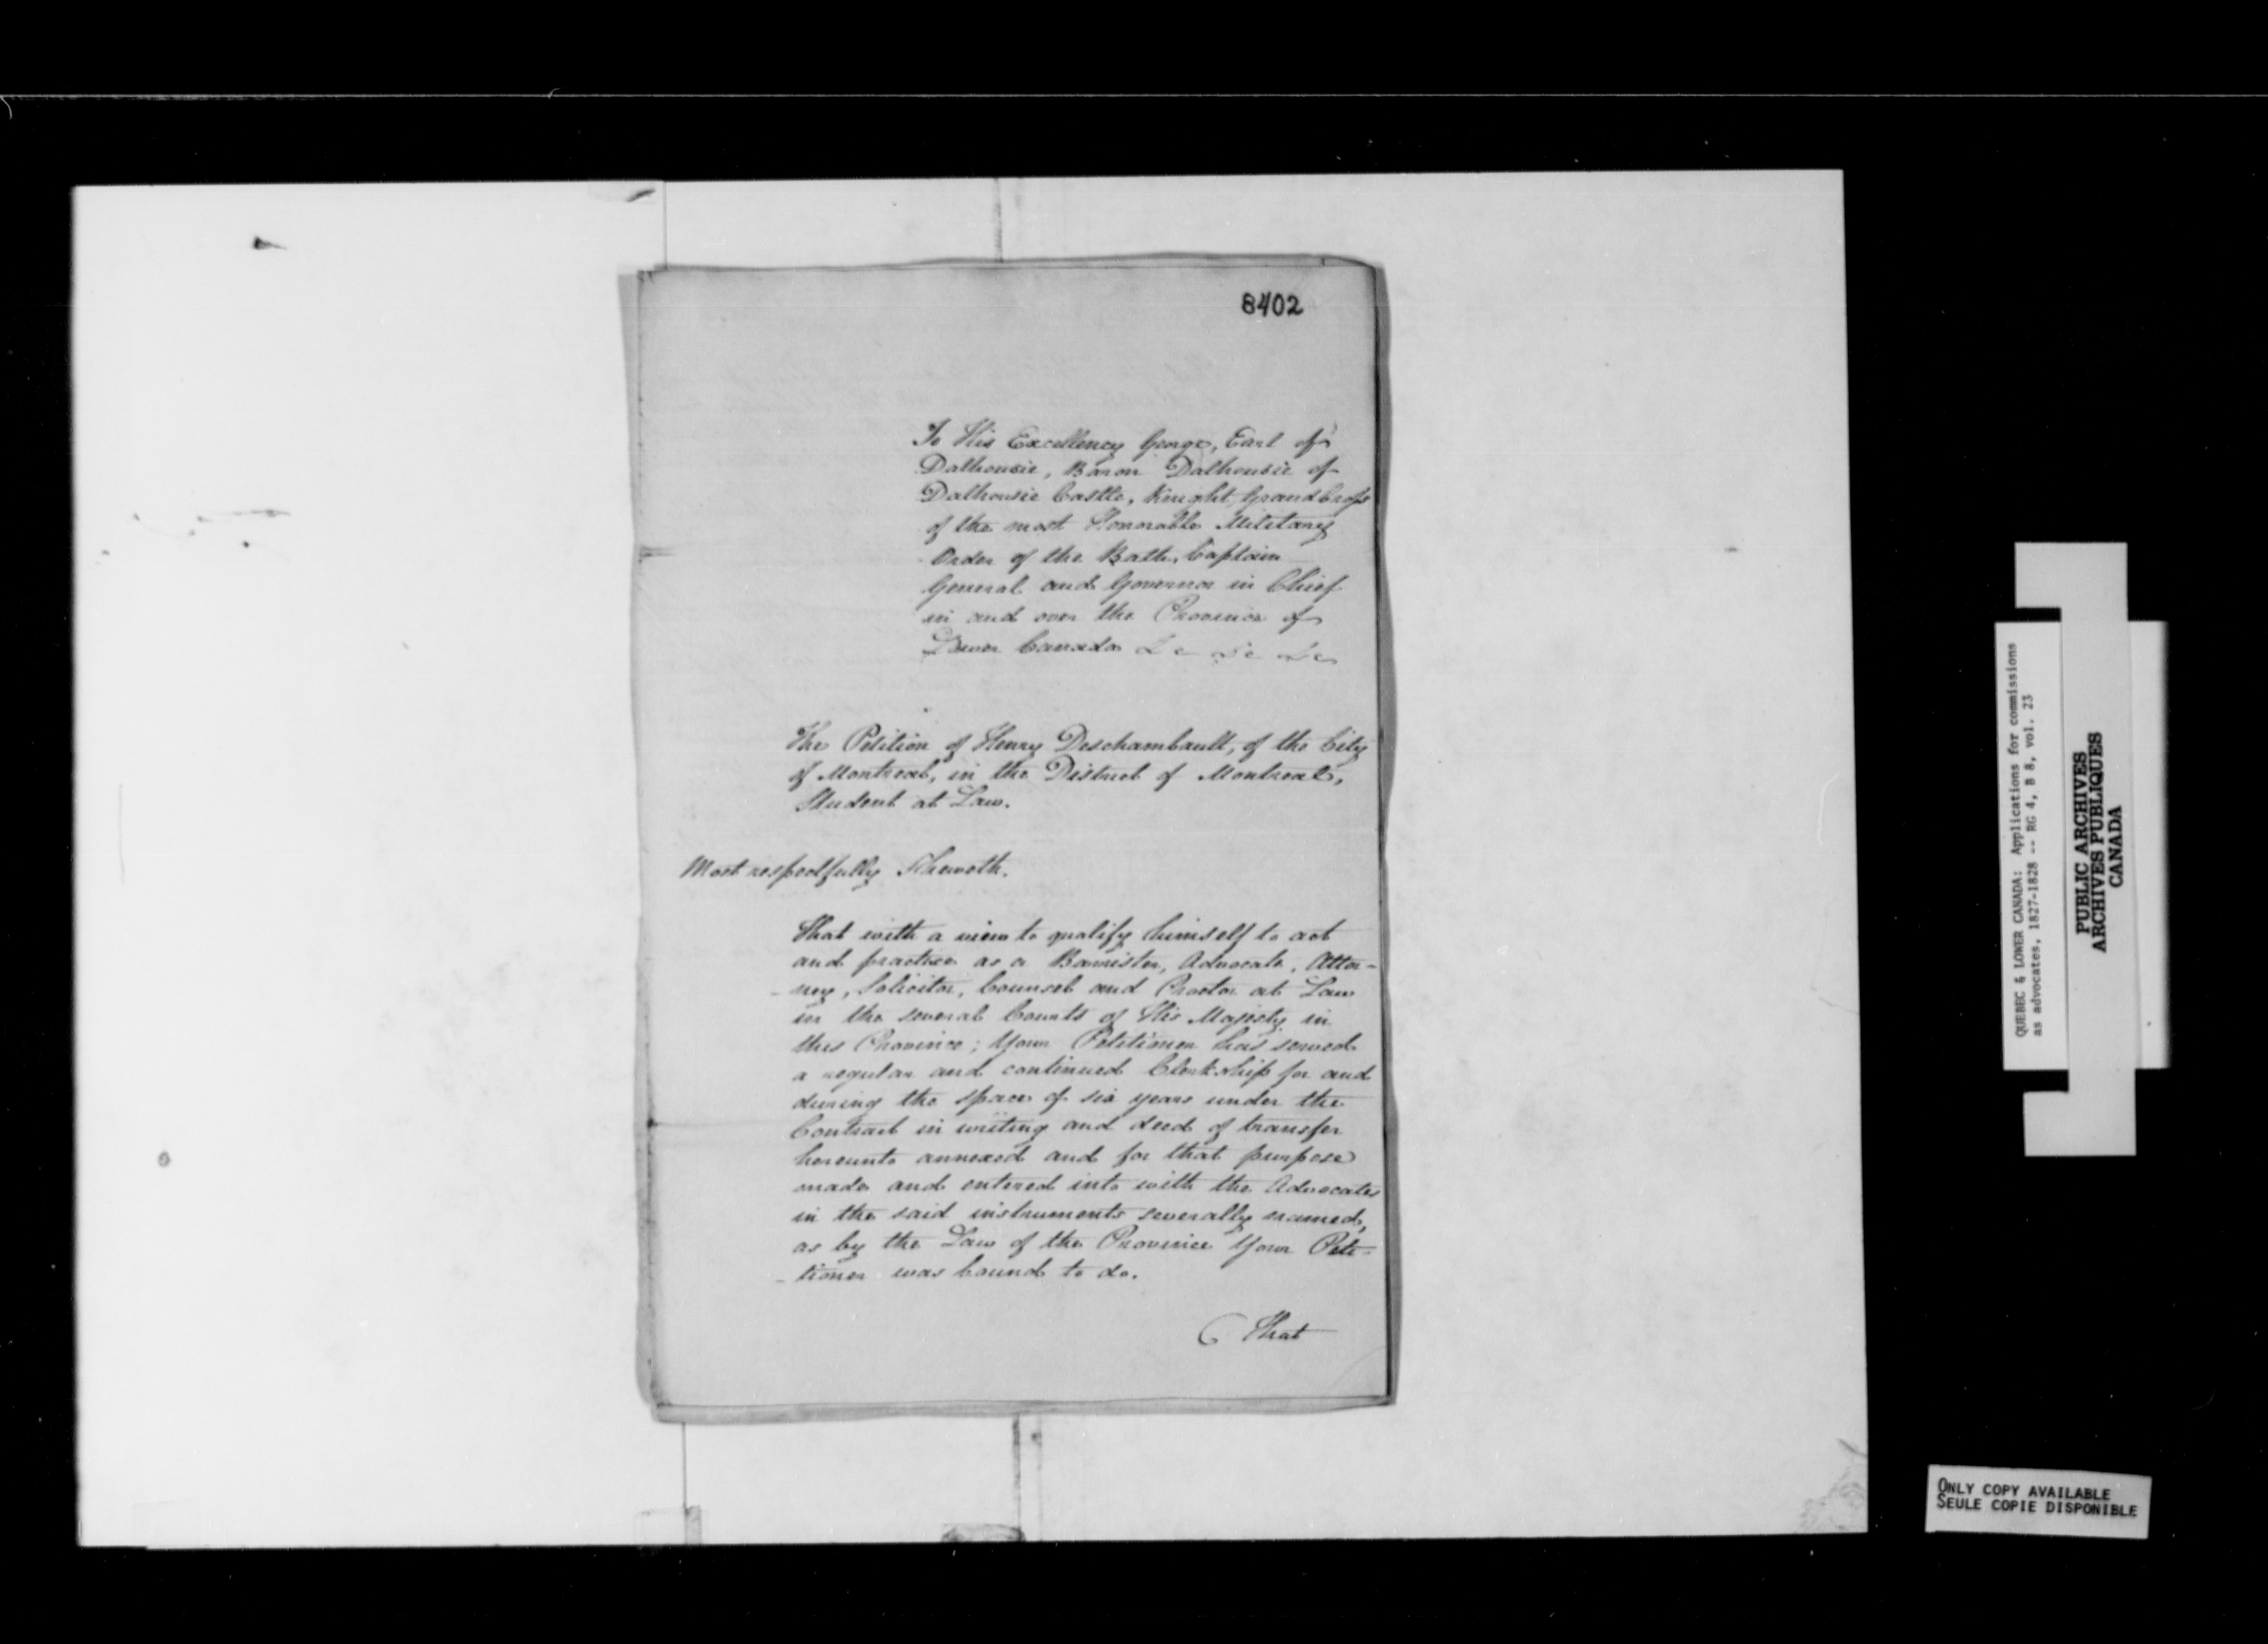 8402
To His Excellency George, Earl of
Dalhousie, Baron Dalhousie of
Dalhousie Castle, Knight, Grand Cross
of the most Honorable Military
Order of the Bath, Captain
General and Governor in Chief
in and over the Province of
Lower Canada &c &c &c
The Petition of Henry Deschambault, of the City
of Montreal, in the District of Montreal,
Student at Law.
Most respectfully Sheweth.
That with a view to qualify himself to act
and practice as a Barrister, Advocate, Attor-
-ney, Solicitor, Counsel and Proctor at Law
in the several Courts of His Majesty in
this Province; Your Petitioner has served
a regular and continued Clerkship for and
during the space of six years under the
Contract in writing and deed of transfer
hereunto annexed and for that purpose
made and entered into with the Advocates
in the said instruments severally named,
as by the Law of the Province Your Peti-
-tioner was bound to do.
That
QUEBEC & LOWER CANADA: Applications for commissions
as advocates, 1827-1828 -- RG 4, B 8, vol. 23
PUBLIC ARCHIVES
ARCHIVES PUBLIQUES
CANADA
ONLY COPY AVAILABLE
SEULE COPIE DISPONIBLE